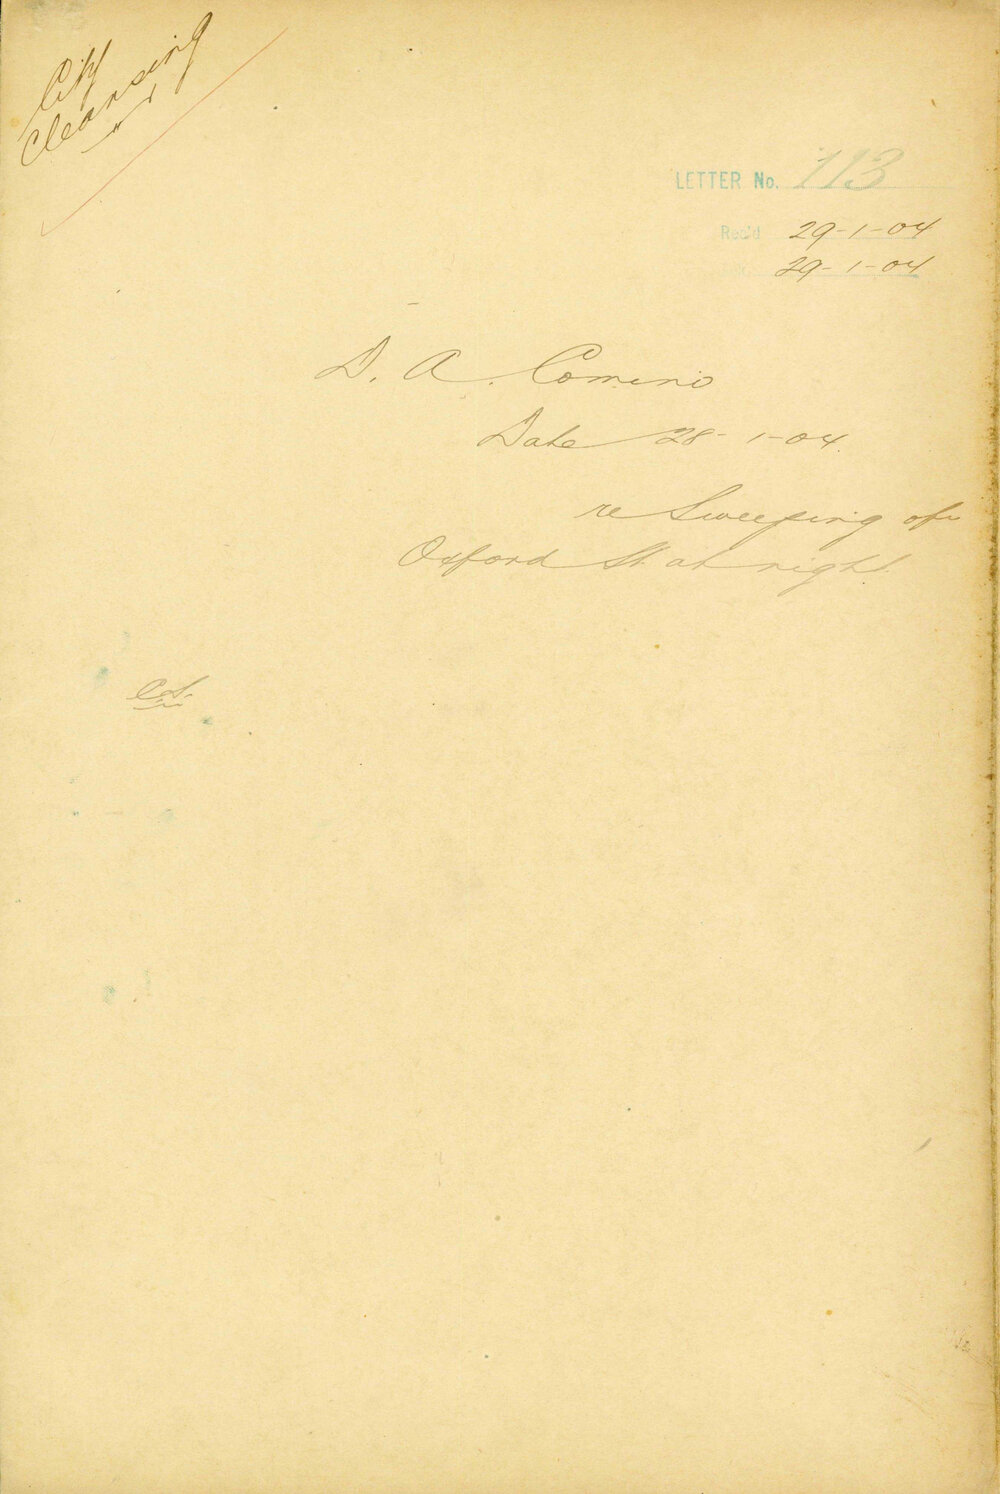 City
Cleansing
LETTER No. 113
Rec'd 29-1-04
29-1-04
D. A. Comino
Date 28-1-04.
re Sweeping of
Oxford St. at night.
C.S.